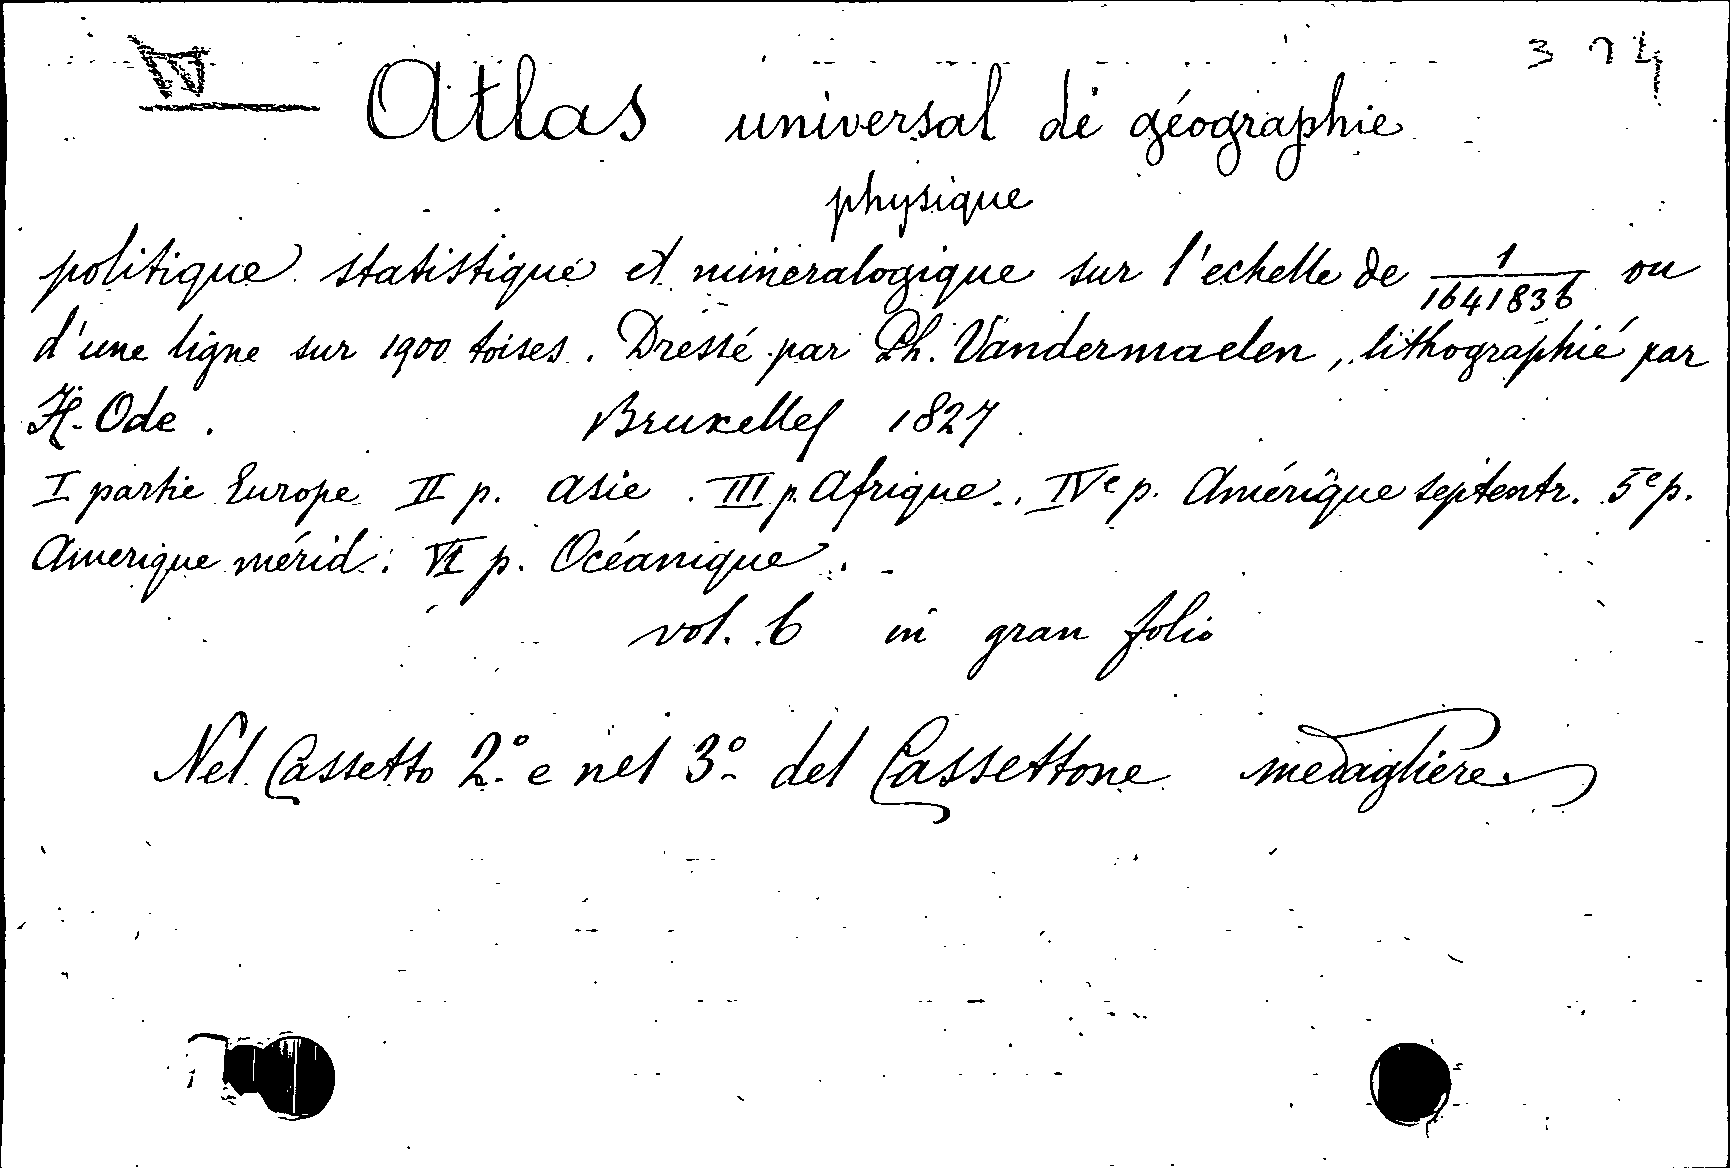 IV 374
Atlas universal de géographie
physique
politique statistique et mineralogique sur l'echelle de 1/1641836 ou
d'une ligne sur 1900 toises. Dressé par Ph. Vandermaelen, lithographié par
H. Ode. Bruxelles 1827
I partie Europe II p. Asie. III p. Afrique. IVe p. Amérique septentr. 5e p.
Amerique mérid: VI p. Océanique.
vol. 6 in gran folio
Nel Cassetto 2.° e nel 3.° del Cassettone medagliere